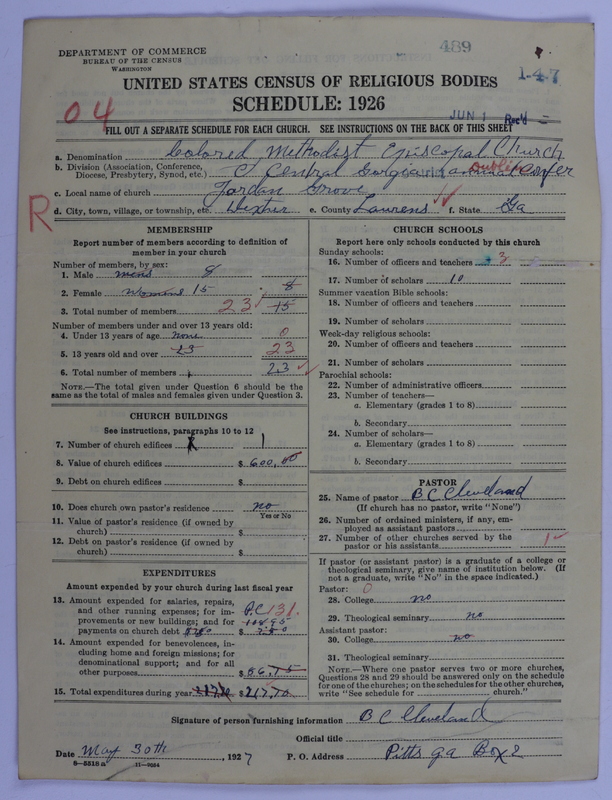 489
DEPARTMENT OF COMMERCE
BUREAU OF THE CENSUS
WASHINGTON
1-4-7
UNITED STATES CENSUS OF RELIGIOUS BODIES
SCHEDULE: 1926
04
JUN 1 Rec'd
FILL OUT A SEPARATE SCHEDULE FOR EACH CHURCH. SEE INSTRUCTIONS ON THE BACK OF THIS SHEET
a. Denomination Colored Methodist Episcopal Church
b. Division (Association, Conference, Diocese, Presbytery, Synod, etc.) C, Central Georgia Dublin Confer
c. Local name of church Jordan Grove
R
d. City, town, village, or township, etc. Dexter e. County Laurens f. State Ga
MEMBERSHIP
Report number of members according to definition of member in your church
Number of members, by sex:
1. Male mens 8 8
2. Female womens 15
3. Total number of members 23 15
Number of members under and over 13 years old:
4. Under 13 years of age none 0
5. 13 years old and over 23 23
6. Total number of members 23
NOTE.—The total given under Question 6 should be the same as the total of males and females given under Question 3.
CHURCH BUILDINGS
See instructions, paragraphs 10 to 12
7. Number of church edifices 1
8. Value of church edifices $ 600,00
9. Debt on church edifices $
10. Does church own pastor's residence no
Yes or No
11. Value of pastor's residence (if owned by church) $
12. Debt on pastor's residence (if owned by church) $
EXPENDITURES
Amount expended by your church during last fiscal year
13. Amount expended for salaries, repairs, and other running expenses; for improvements or new buildings; and for payments on church debt P.C. 131. $
14. Amount expended for benevolences, including home and foreign missions; for denominational support; and for all other purposes $ 86,75
15. Total expenditures during year $ 217,70
CHURCH SCHOOLS
Report here only schools conducted by this church
Sunday schools:
16. Number of officers and teachers 3
17. Number of scholars 10
Summer vacation Bible schools:
18. Number of officers and teachers
19. Number of scholars
Week-day religious schools:
20. Number of officers and teachers
21. Number of scholars
Parochial schools:
22. Number of administrative officers
23. Number of teachers—
a. Elementary (grades 1 to 8)
b. Secondary
24. Number of scholars—
a. Elementary (grades 1 to 8)
b. Secondary
PASTOR
25. Name of pastor B C Cleveland
(If church has no pastor, write "None")
26. Number of ordained ministers, if any, employed as assistant pastors
27. Number of other churches served by the pastor or his assistants 1
If pastor (or assistant pastor) is a graduate of a college or theological seminary, give name of institution below. (If not a graduate, write "No" in the space indicated.)
Pastor: 0
28. College no
29. Theological seminary no
Assistant pastor:
30. College no
31. Theological seminary
NOTE.—Where one pastor serves two or more churches, Questions 28 and 29 should be answered only on the schedule for one of the churches; on the schedules for the other churches, write "See schedule for church."
Signature of person furnishing information B C Cleveland
Official title
Date May 30th, 1927 P. O. Address Pitts ga Box 2
8—5518a 11—9084